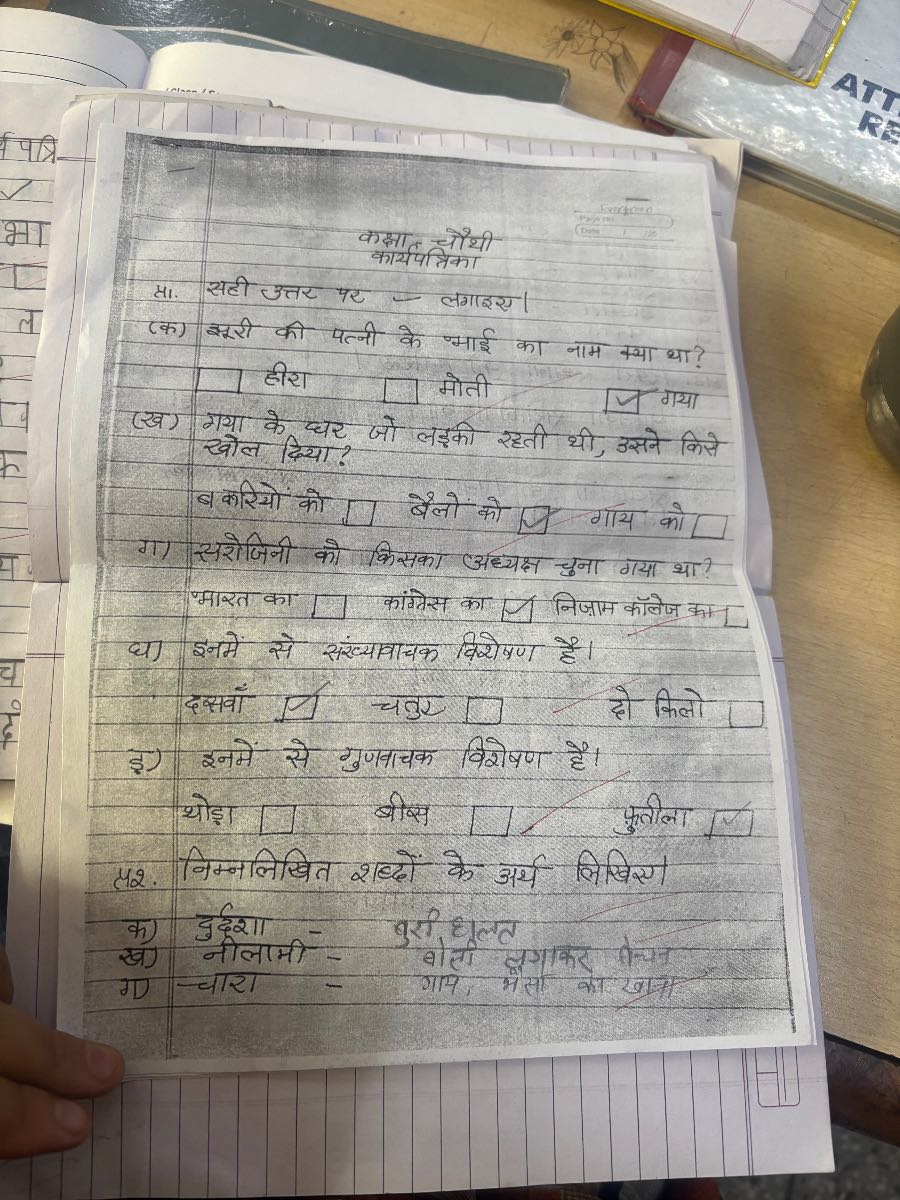 ATT
RE
र्य पत्रि
भा
ल
क
च
Evergreen
Page No.
Date / /20
कक्षा - चौथी
कार्यपत्रिका
प्र1. सही उत्तर पर ✓ लगाइए।
(क) झूरी की पत्नी के भाई का नाम क्या था?
हीरा मोती ✓ गया
(ख) गया के घर जो लड़की रहती थी, उसने किसे
खोल दिया?
बकरियों को बैलों को ✓ गाय को
ग) सरोजिनी को किसका अध्यक्ष चुना गया था?
भारत का कांग्रेस का ✓ निज़ाम कॉलेज का
घ) इनमें से संख्यावाचक विशेषण है।
दसवाँ ✓ चतुर दो किलो
ङ) इनमें से गुणवाचक विशेषण है।
थोड़ा बीस फुर्तीला ✓
प्र2. निम्नलिखित शब्दों के अर्थ लिखिए।
क) दुर्दशा - बुरी हालत
ख) नीलामी - बोली लगाकर बेचन
ग) चारा - गाय, भैंसों का खाना